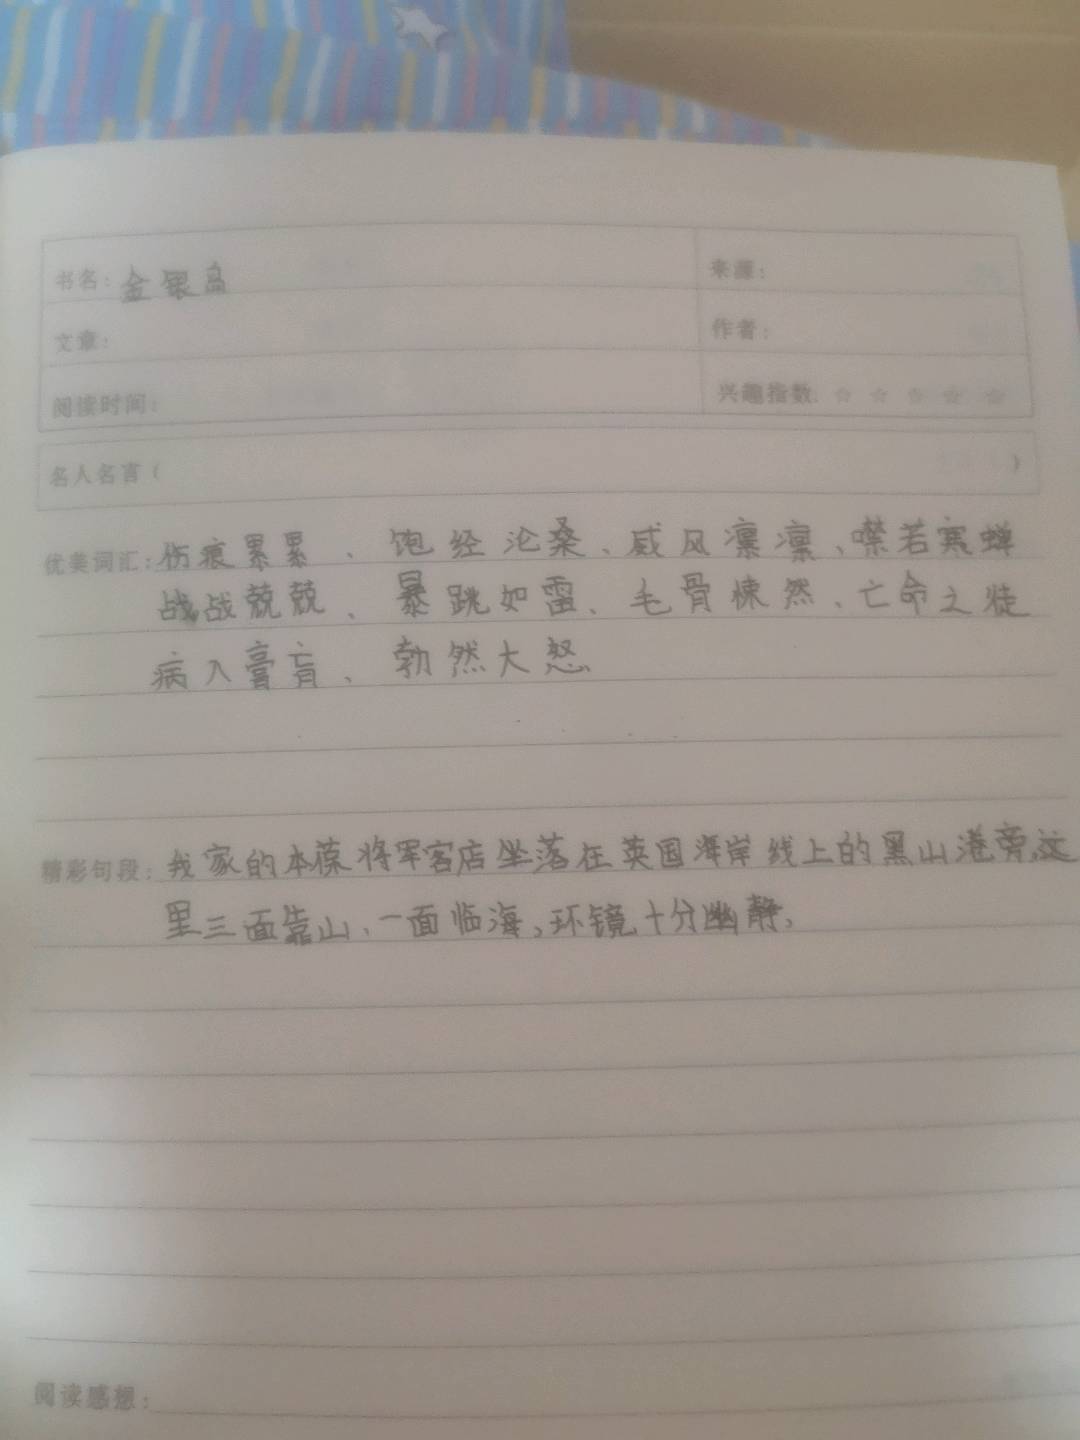 书名: 金银岛 来源:
文章: 作者:
阅读时间: 兴趣指数: ☆ ☆ ☆ ☆ ☆
名人名言( )
优美词汇: 伤痕累累、饱经沦桑、威风凛凛、噤若寒蝉
战战兢兢、暴跳如雷、毛骨悚然、亡命之徒
病入膏肓、勃然大怒
精彩句段: 我家的本葆将军客店坐落在英国海岸线上的黑山港旁,这
里三面靠山、一面临海,环镜十分幽静,
阅读感想: